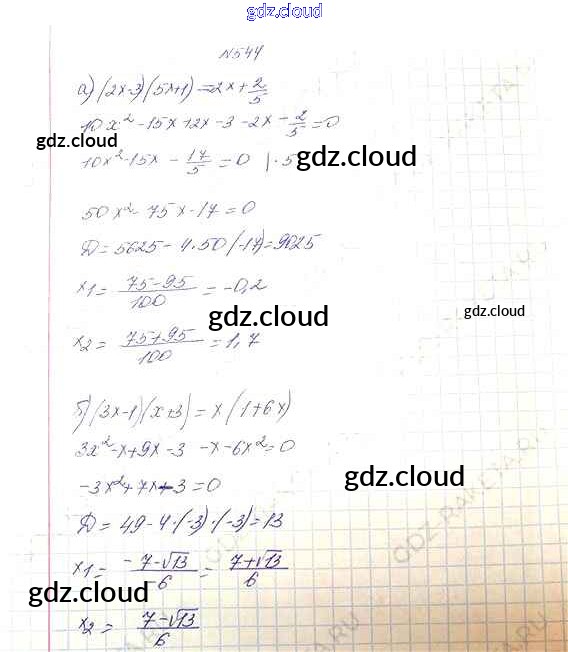 gdz.cloud
N544
а) (2x-3)(5x+1)=2x+2/5
10x²-15x+2x-3-2x-2/5=0
gdz.cloud
10x²-15x-17/5=0 |·5
gdz.cloud
50x²-75x-17=0
D=5625-4·50(-17)=9025
x1=(75-95)/100=-0,2
gdz.cloud
gdz.cloud
x2=(75+95)/100=1,7
б) (3x-1)(x+3)=x(1+6x)
3x²-x+9x-3-x-6x²=0
gdz.cloud
-3x²+7x-3=0
D=49-4·(-3)·(-3)=13
x1=(-7-√13)/-6=(7+√13)/6
gdz.cloud
x2=(7-√13)/6
GDZ-RAKETA.RU